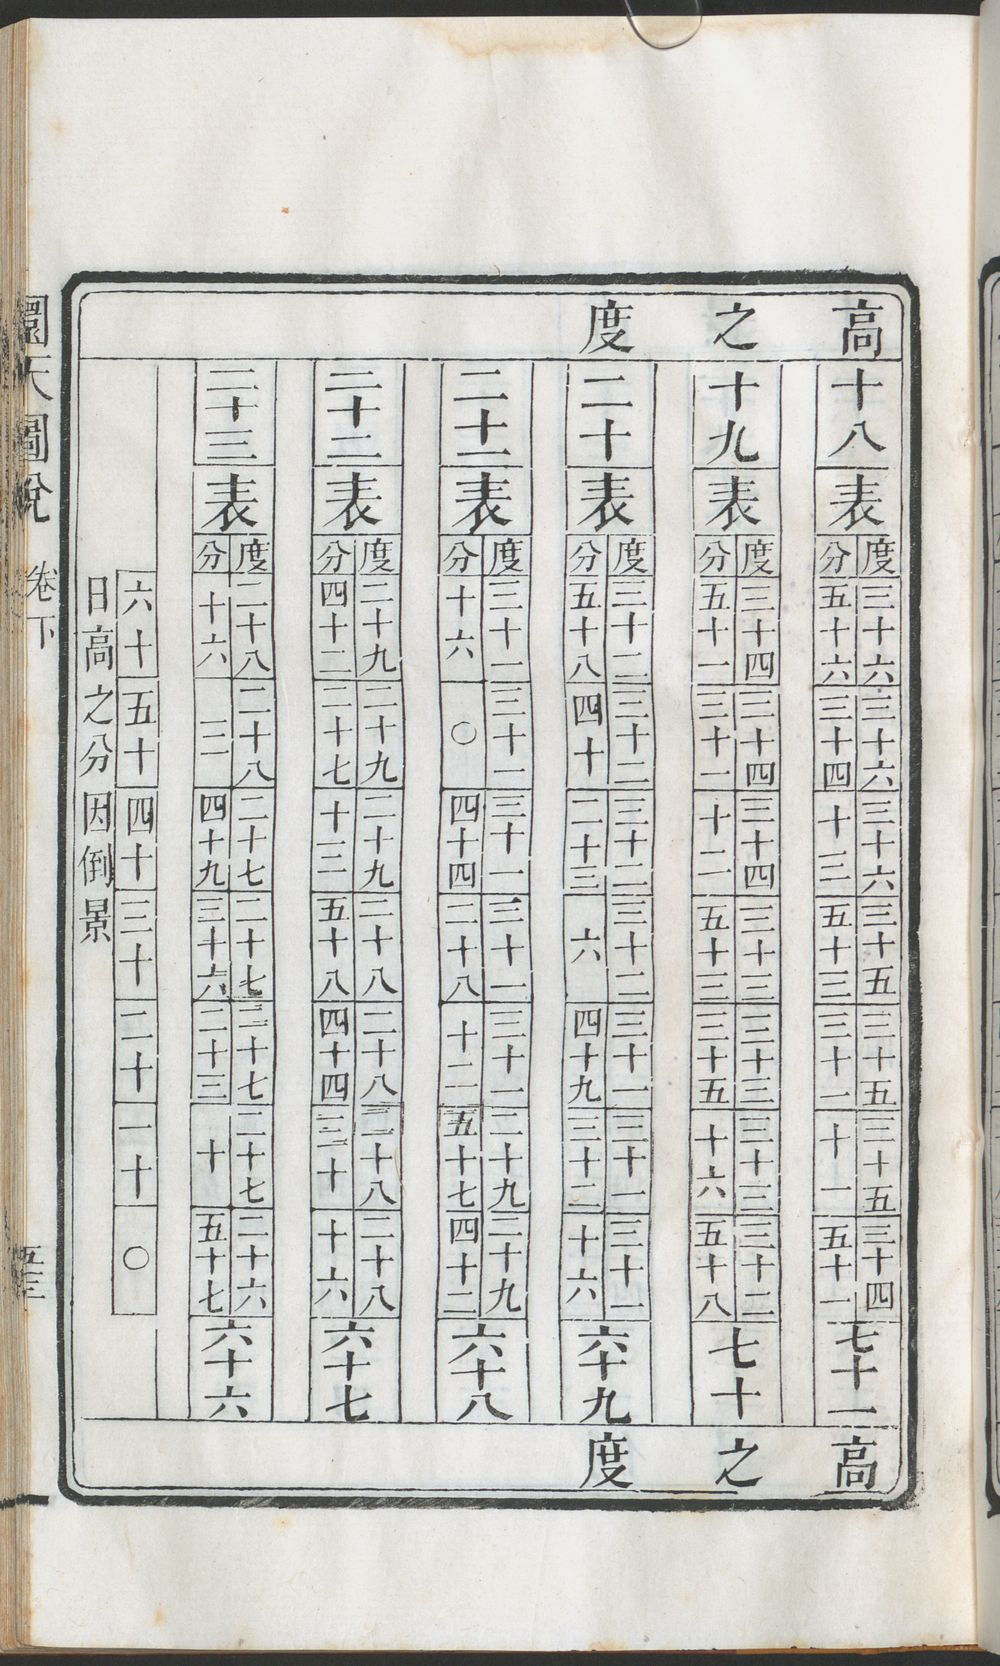 高之度
十八
表
度三十六三十六三十六三十五三十五三十五三十四
分五十六三十四十三五十三三十一十一五十一
七十一
十九
表
度三十四三十四三十四三十三三十三三十三三十二
分五十一三十一十二五十三三十五十六五十八
七十
二十
表
度三十二三十二三十二三十二三十一三十一三十一
分五十八四十二十三六四十九三十二十六
六十九
二十一
表
度三十一三十一三十一三十一三十一二十九二十九
分十六〇四十四二十八十二五十七四十二
六十八
二十二
表
度二十九二十九二十九二十八二十八二十八二十八
分四十二二十七十三五十八四十四三十十六
六十七
二十三
表
度二十八二十八二十七二十七二十七二十七二十六
分十六三四十九三十六二十三十五十七
六十六
六十五十四十三十二十一十〇
日高之分因倒景
高之度
圜天圖說 卷下